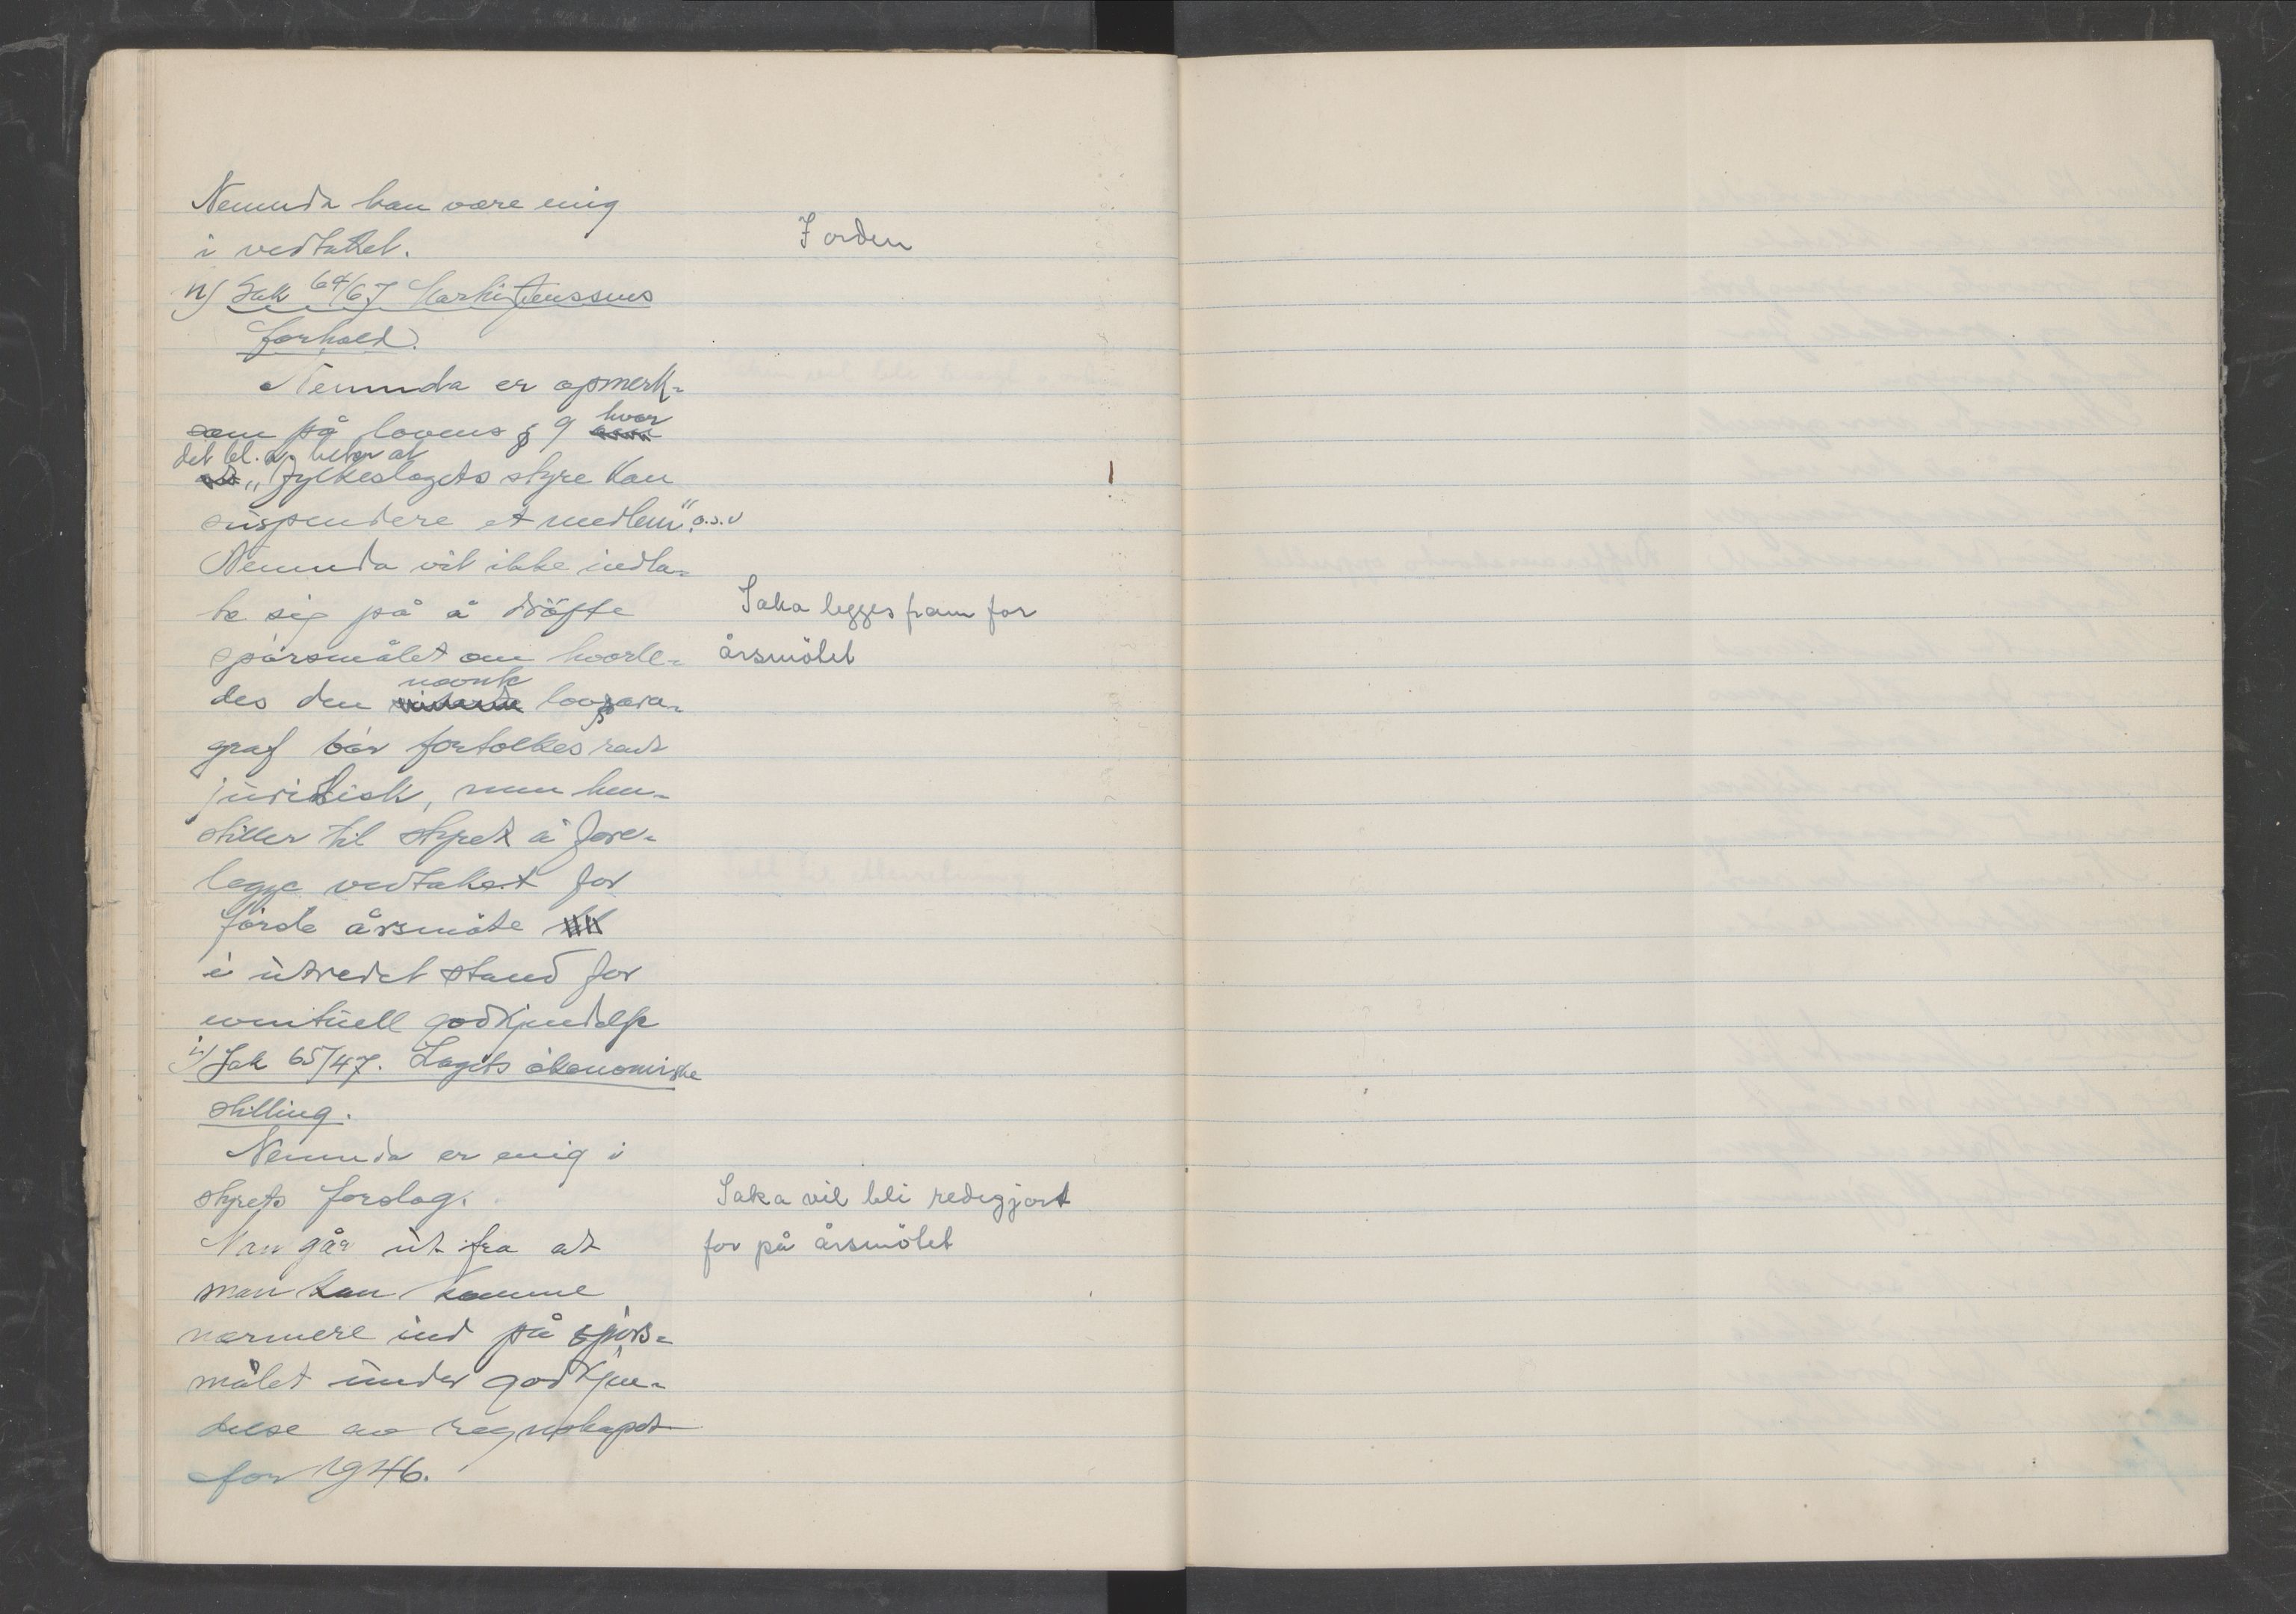 Nemnda kan være enig
i vedtaket.
I orden
Sak 64/67
forhold.
Nemnda er opmerk-
som på lovens § 9 hvor
det bl. a. heter at
„Fylkeslagets styre kan
suspendere et medlem". o.s.v
Nemnda vil ikke indla-
te sig på å dröfte
spörsmålet om hvorle-
des den nevnte lovpara-
graf bör fortolkes rent
juridisk, men hen-
stiller til styret å fore-
legge vedtaket for
förste årsmöte
i utredet stand for
eventuell godkjendelse
Saka legges fram for
årsmötet
i) Sak 65/47. Lagets ökonomiske
stilling.
Nemnda er enig i
styrets forslag.
Man går ut fra at
man kan komme
nærmere ind på spörs-
målet under godkjen-
delse av regnskapet
for 1946.
Saka vil bli redegjort
for på årsmötet